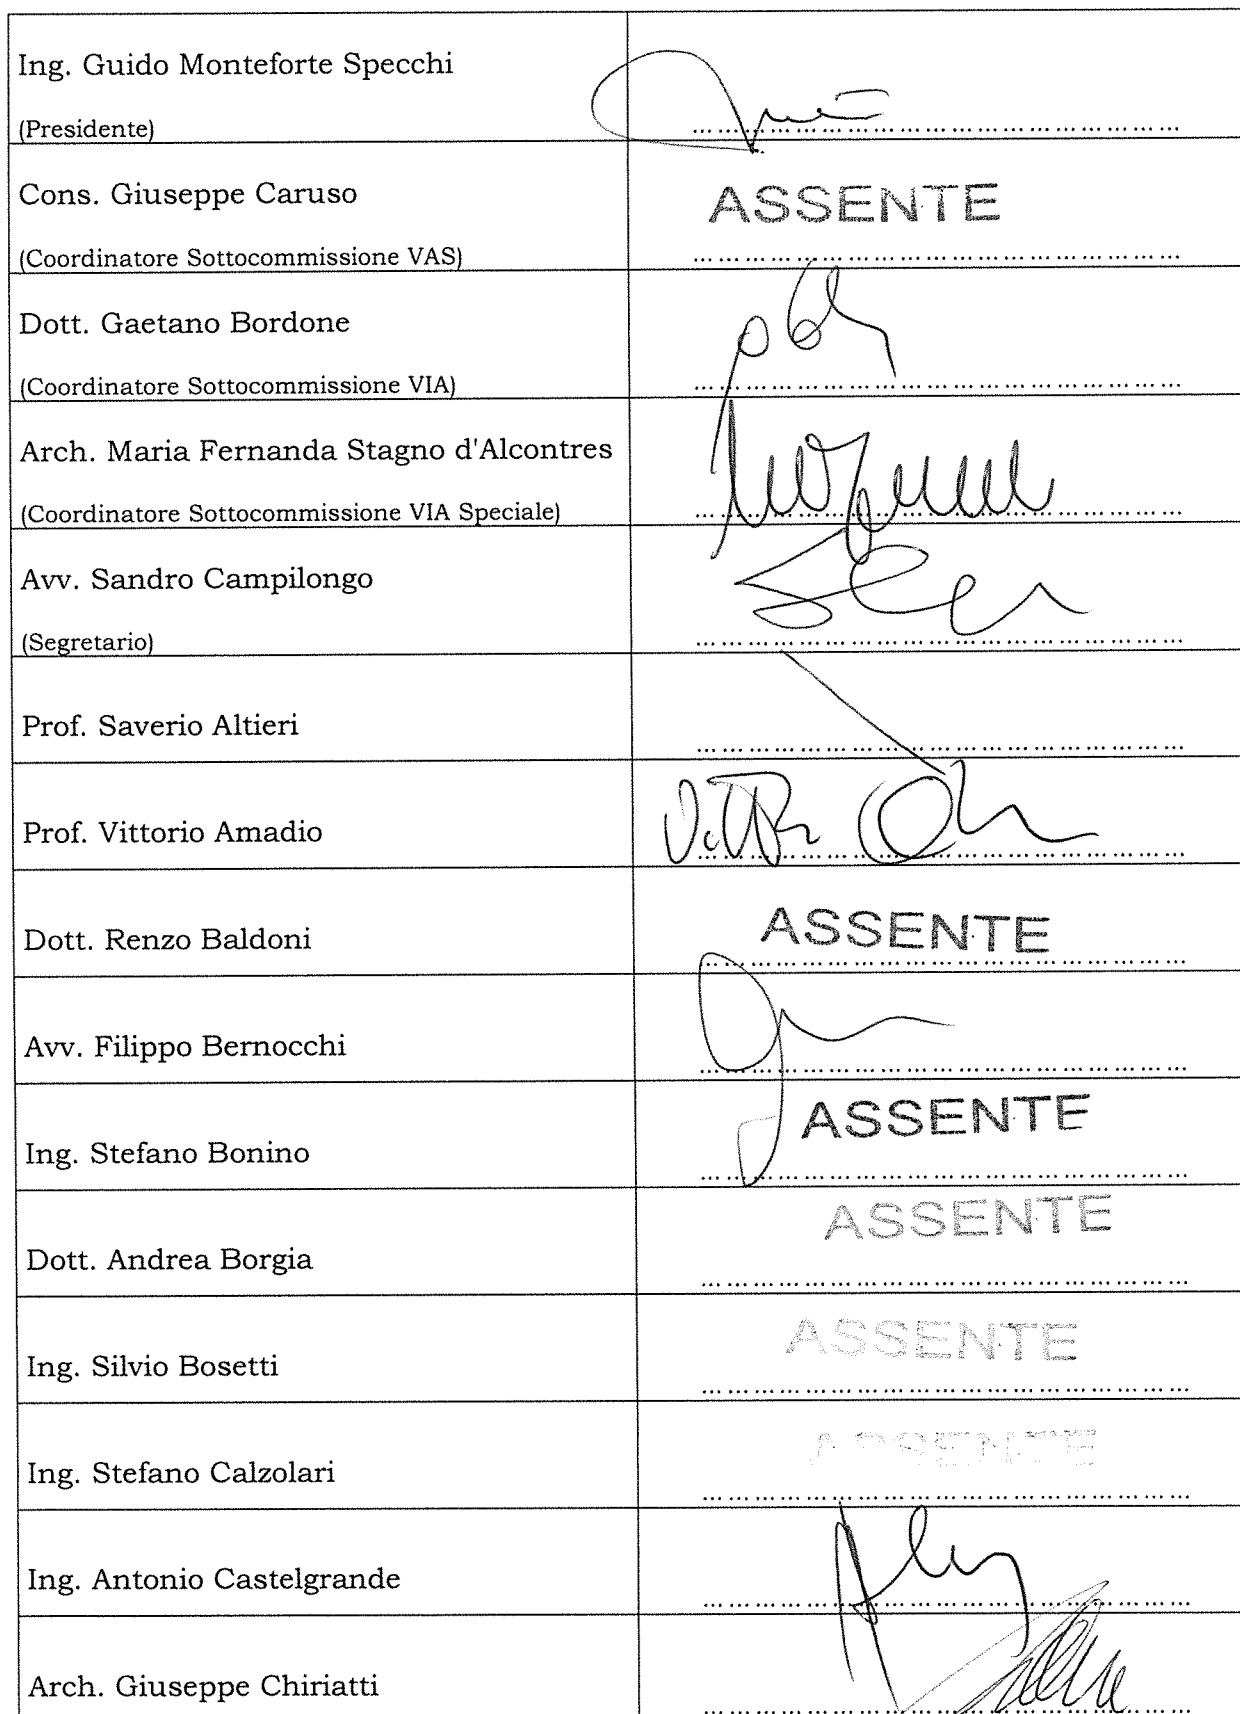 Ing. Guido Monteforte Specchi
(Presidente)
Cons. Giuseppe Caruso
ASSENTE
(Coordinatore Sottocommissione VAS)
Dott. Gaetano Bordone
(Coordinatore Sottocommissione VIA)
Arch. Maria Fernanda Stagno d'Alcontres
(Coordinatore Sottocommissione VIA Speciale)
Avv. Sandro Campilongo
(Segretario)
Prof. Saverio Altieri
Prof. Vittorio Amadio
Dott. Renzo Baldoni
ASSENTE
Avv. Filippo Bernocchi
Ing. Stefano Bonino
ASSENTE
Dott. Andrea Borgia
ASSENTE
Ing. Silvio Bosetti
ASSENTE
Ing. Stefano Calzolari
ASSENTE
Ing. Antonio Castelgrande
Arch. Giuseppe Chiriatti